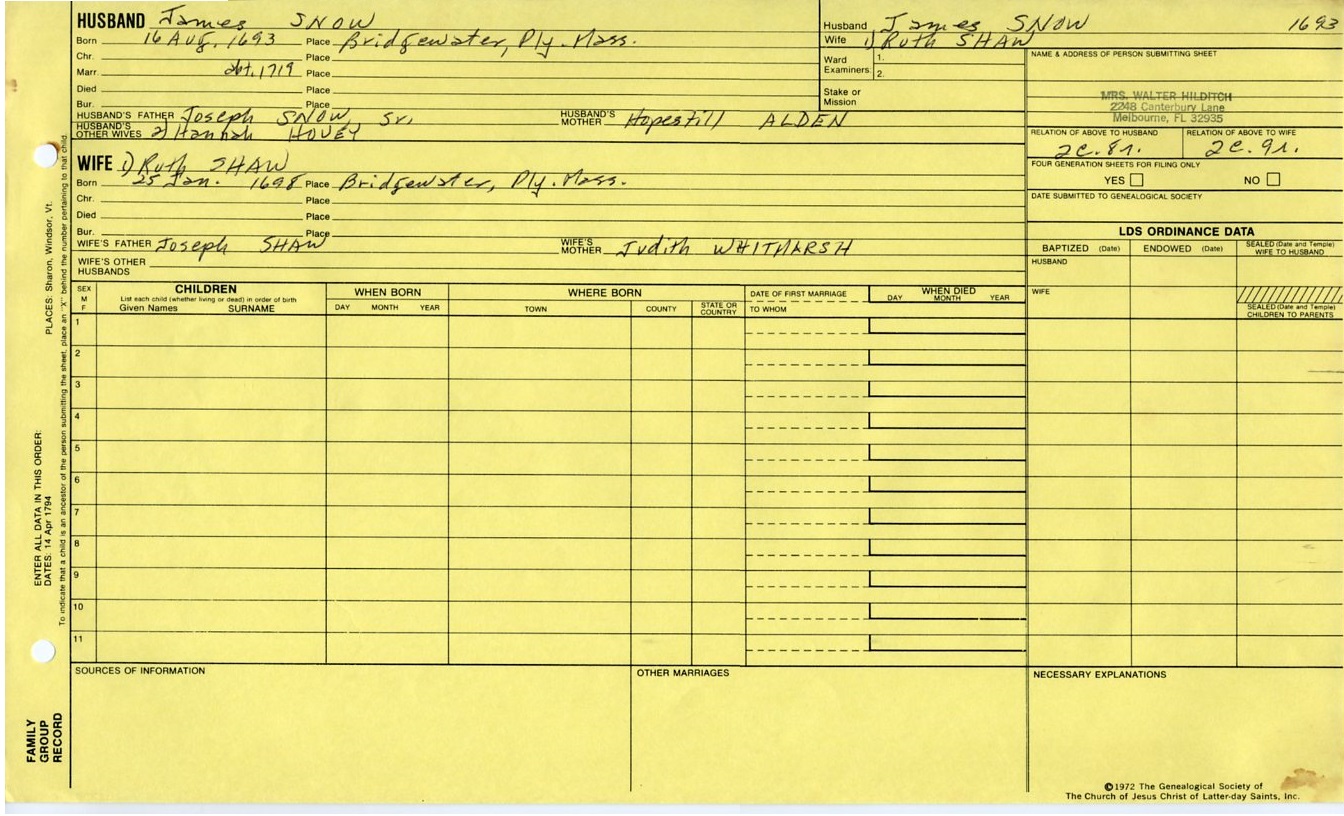 HUSBAND James SNOW
Born 16 Aug. 1693 Place Bridgewater, Ply. Mass.
Chr. Place
Marr. abt. 1719 Place
Died Place
Bur. Place
HUSBAND'S FATHER Joseph SNOW, Sr. HUSBAND'S MOTHER Hopestill ALDEN
HUSBAND'S OTHER WIVES 2) Hannah HOVEY
Husband James SNOW 1693
Wife 1) Ruth SHAW
Ward Examiners 1.
2.
Stake or Mission
NAME & ADDRESS OF PERSON SUBMITTING SHEET
MRS. WALTER HILDITCH
2248 Canterbury Lane
Melbourne, FL 32935
RELATION OF ABOVE TO HUSBAND RELATION OF ABOVE TO WIFE
2c. 8r. 2c. 9r.
FOUR GENERATION SHEETS FOR FILING ONLY
YES NO
DATE SUBMITTED TO GENEALOGICAL SOCIETY
WIFE 1) Ruth SHAW
Born 25 Jan. 1698 Place Bridgewater, Ply. Mass.
Chr. Place
Died Place
Bur. Place
WIFE'S FATHER Joseph SHAW WIFE'S MOTHER Judith WHITMARSH
WIFE'S OTHER HUSBANDS
LDS ORDINANCE DATA
BAPTIZED (Date) ENDOWED (Date) SEALED (Date and Temple) WIFE TO HUSBAND
HUSBAND
WIFE
SEALED (Date and Temple) CHILDREN TO PARENTS
SEX M F
CHILDREN
List each child (whether living or dead) in order of birth
Given Names SURNAME
WHEN BORN
DAY MONTH YEAR
WHERE BORN
TOWN COUNTY STATE OR COUNTRY
DATE OF FIRST MARRIAGE
TO WHOM
WHEN DIED
DAY MONTH YEAR
1
2
3
4
5
6
7
8
9
10
11
SOURCES OF INFORMATION OTHER MARRIAGES NECESSARY EXPLANATIONS
©1972 The Genealogical Society of
The Church of Jesus Christ of Latter-day Saints, Inc.
ENTER ALL DATA IN THIS ORDER:
DATES: 14 Apr 1794 PLACES: Sharon, Windsor, Vt.
To indicate that a child is an ancestor of the person submitting the sheet, place an "X" behind the number pertaining to that child.
FAMILY
GROUP
RECORD